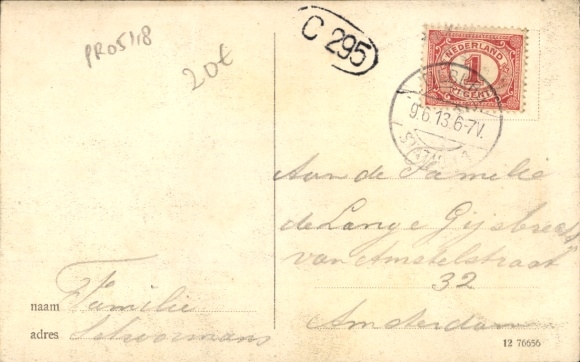 PR05118
20€
C 295
NEDERLAND
1
CENT
9.6.13.6-7V.
Aan de Familie
de Lange Gijsbrecht
van Amstelstraat
32
Amsterdam
naam Familie
adres Schoormans
12 76656